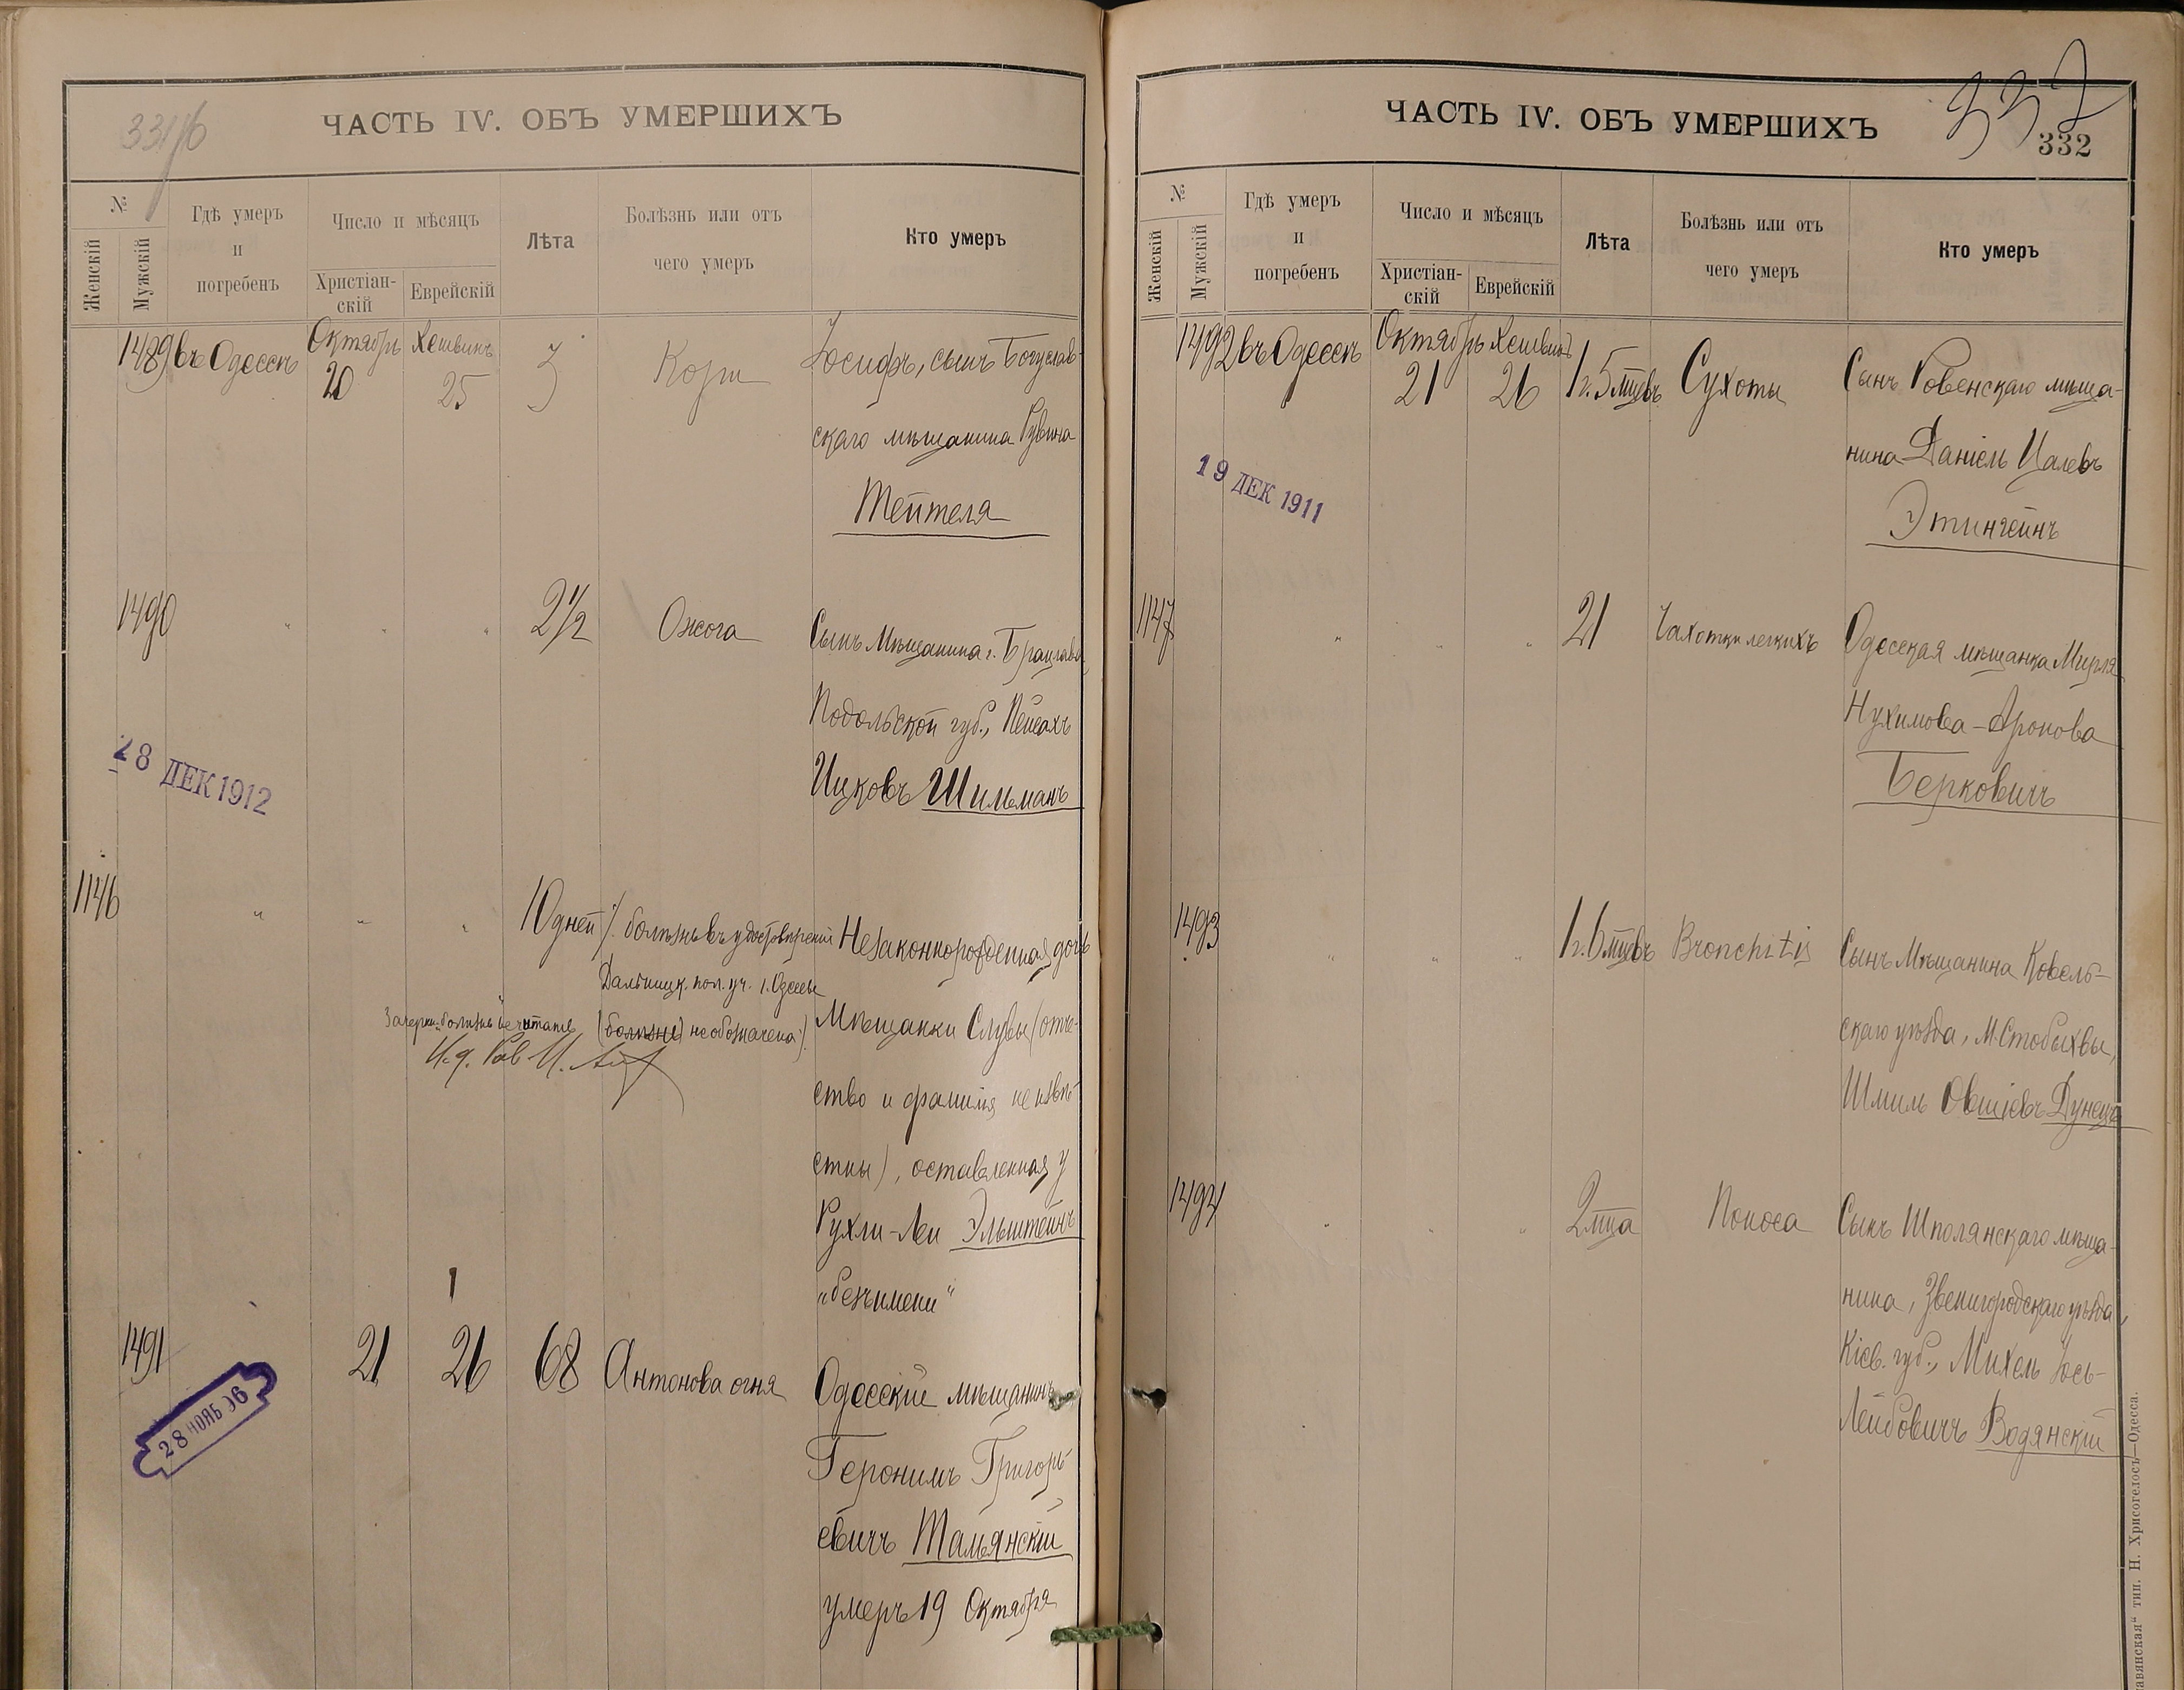 331/б
ЧАСТЬ IV. ОБЪ УМЕРШИХЪ
№
Женскій
Мужскій
Гдѣ умеръ
и
погребенъ
Число и мѣсяцъ
Христіан-
скій
Еврейскій
Лѣта
Болѣзнь или отъ
чего умеръ
Кто умеръ
1489 въ Одессѣ Октябрь 20 Хешвинъ 25 3 Кори Іосифъ, сынъ Богуслав-
скаго мѣщанина Рувина
Тейтеля
1490 " " " 2½ Ожога Сынъ Мѣщанина г. Брацлава,
Подольской губ., Пейсахъ
Ицковъ Шильманъ
28 ДЕК 1912
1146 " " " 10 дней /. болѣзнь въ удостовѣреніи Незаконнорожденная дочь
Дальницк. пол. уч. г. Одессы
(болѣзни) не обозначена). Мѣщанки Слувы (отче-
Зачеркн. "болѣзнь" не читать
И. д. Рав.
ство и фамилія неизвѣ-
стны), оставленная у
Рухли-Леи Эльштейнъ
"безъимени"
1491 21 26 68 Антонова огня Одесскій мѣщанинъ
Геронимъ Григорь-
евичъ Тальянскій
умеръ 19 Октября
28 НОЯБ 96
ЧАСТЬ IV. ОБЪ УМЕРШИХЪ
332
332
№
Женскій
Мужскій
Гдѣ умеръ
и
погребенъ
Число и мѣсяцъ
Христіан-
скій
Еврейскій
Лѣта
Болѣзнь или отъ
чего умеръ
Кто умеръ
1492 въ Одессѣ Октябрь 21 Хешвинъ 26 1 г. 5 мцевъ Сухоты Сынъ Ровенскаго мѣща-
нина Даніель Цалевъ
Этингейнъ
19 ДЕК 1911
1147 " " " 21 Чахотки легкихъ Одесская мѣщанка Мирля
Нухимова-Аронова
Берковичъ
1493 " " " 1 г. 6 мцевъ Bronchitis Сынъ Мѣщанина Ковель-
скаго уѣзда, М. Стобыхвы,
Шмиль Овшіевъ Дунецъ
1494 " " " 2 мца Поноса Сынъ Шполянскаго мѣща-
нина, Звенигородскаго уѣзда,
Кіев. губ., Михель Іось-
Лейбовичъ Водянскій
авянская" тип. Н. Хрисогелосъ—Одесса.